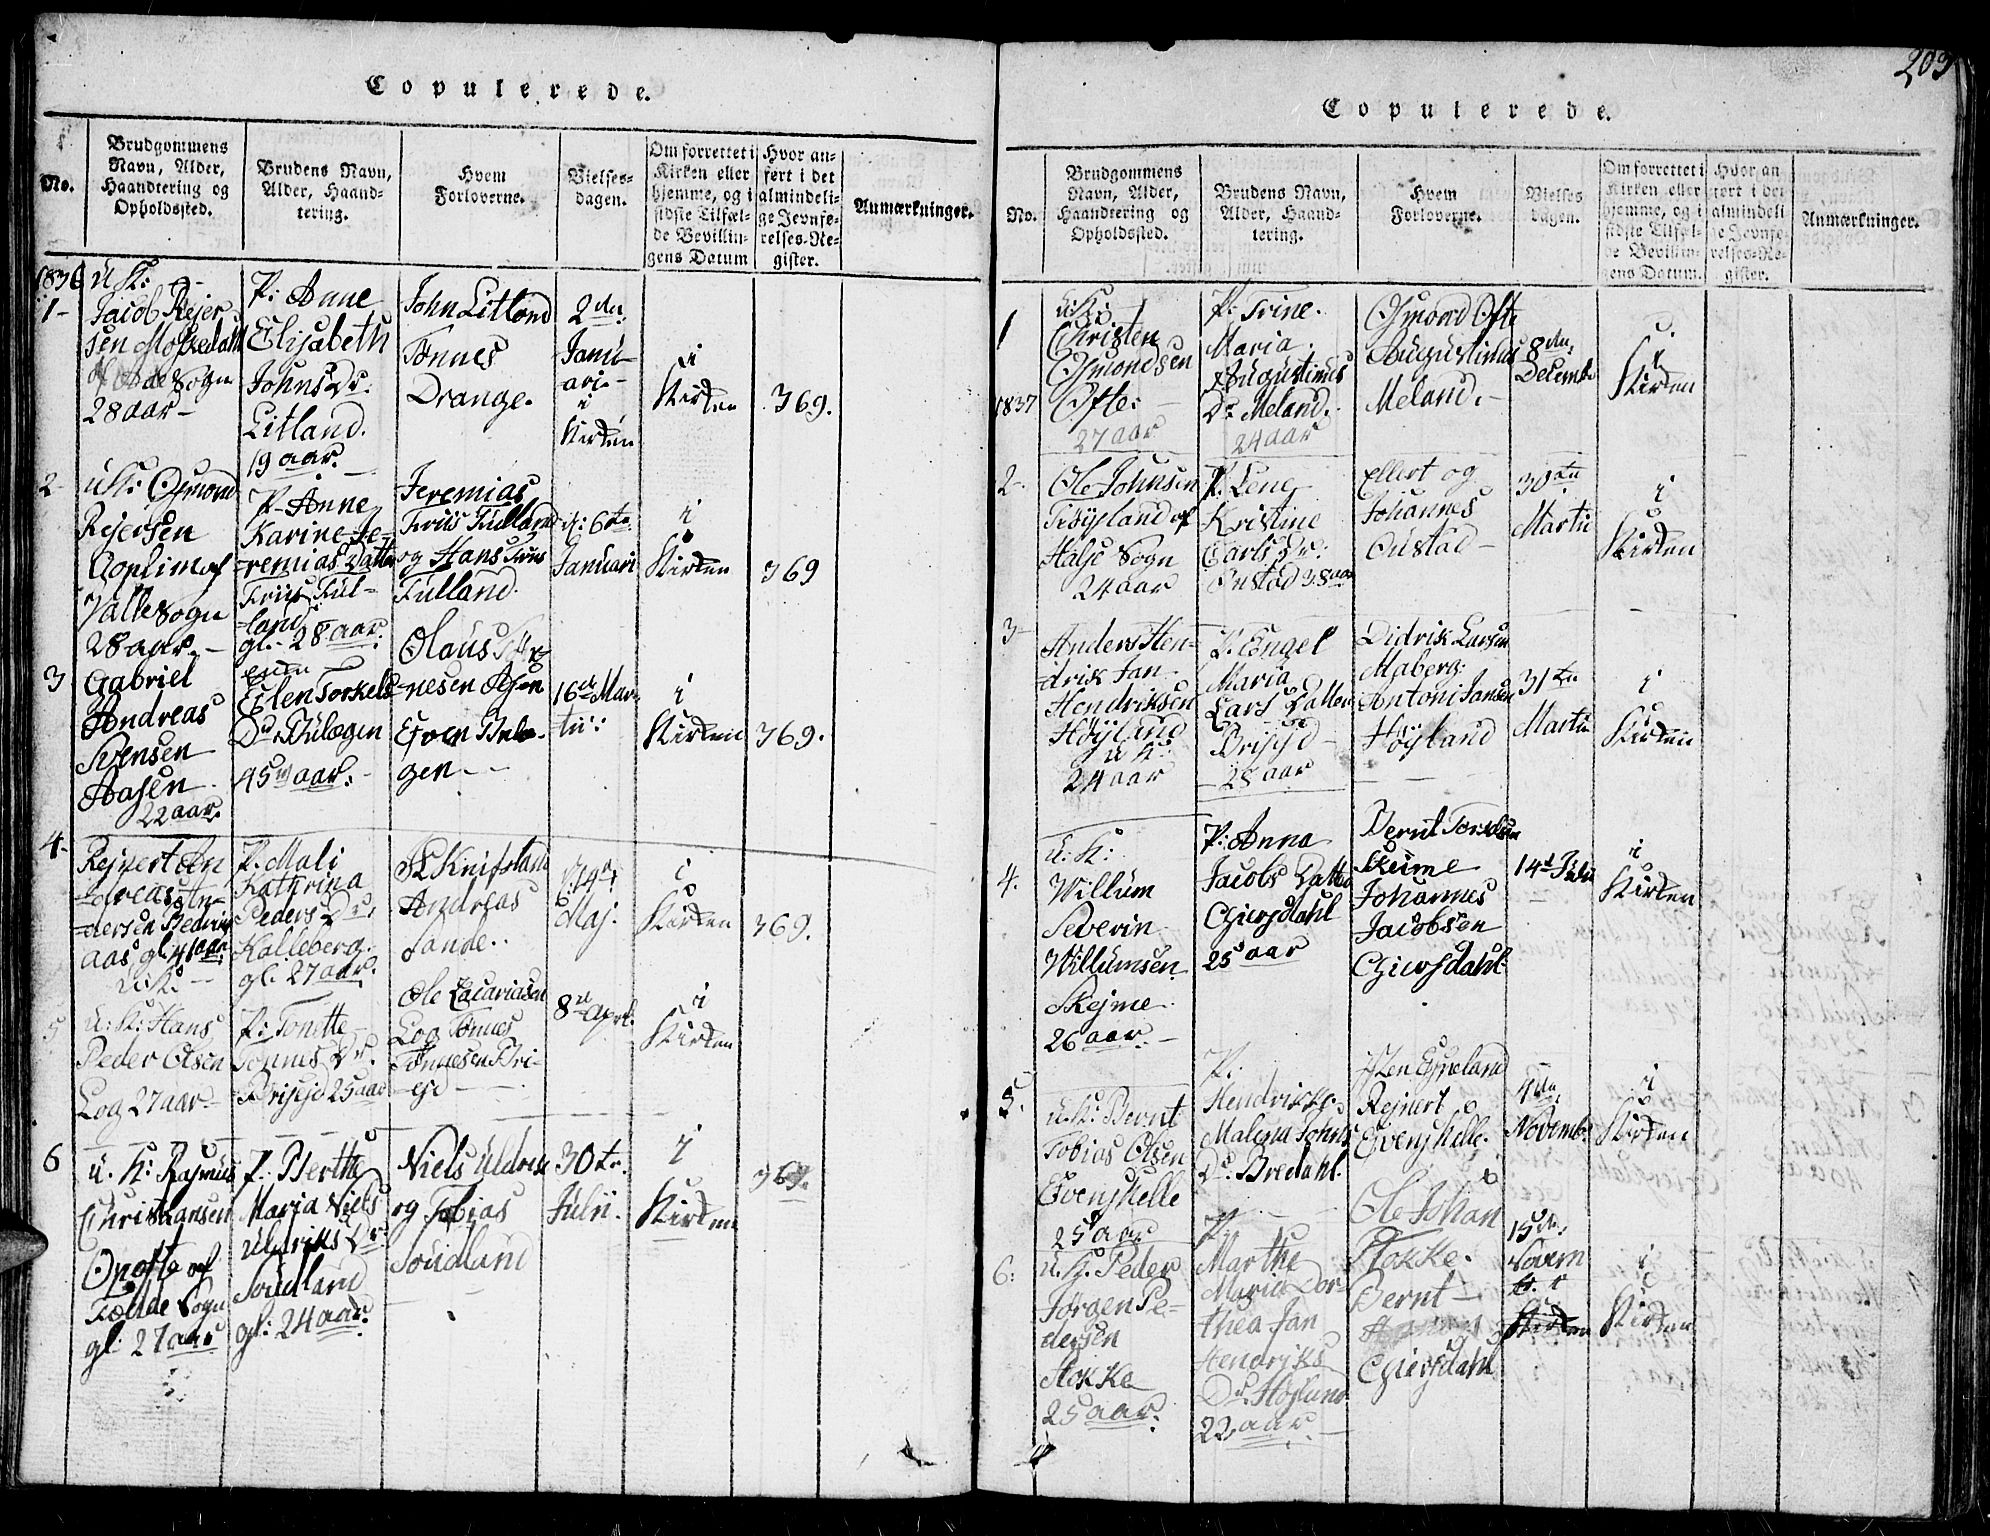 Copulerede.
No.
Brudgommens
Navn, Alder,
Haandtering og
Opholdssted.
Brudens Navn,
Alder, Haand-
tering.
Hvem
Forloverne.
Vielses-
dagen.
Om forrettet i
Kirken eller
hjemme, og i
sidste Tilfæl-
de Bevillin-
gens Datum
Hvor an-
ført i det
almindeli-
ge Jevnfø-
relses-Re-
gister.
Anmærkninger.
1836
1-
u K:
Jacob Rejer
sen
Sogn
28 aar-
P: Anne
Elisabeth
Johns Dr.
Litland.
19 aar.
John Litland
Tønnes
Drange.
2den
Janu-
ari-
i
Kirken
i
Kirken
369.
2-
u K: Osmond
Rejersen
Valle Sogn
28 aar.-
P- Anne
Karine Je-
remias Datter
Friis Ful-
land
gl. 28 aar.
Jeremias
Friis Fulland
og Hans Friis
Fulland.
d: 6te
Januari
i
Kirken
369
3
Gabriel
Andreas
Svensen
Aasen
22 aar.
Ellen Torkels
Dr
45 aar.-
Olaus
nesen Aasen
Even
gen--
16de Mar-
tii:
i
Kirken
369.
4.
Rejnert An
dreas An-
dersen
aas gl. 41 aar.
u. K:
P. Mali
Kathrina
Peders Dr.
Kalleberg.
gl. 27 aar.
Andreas
Sande.
14de
Maj.
i
Kirken
369.
5
u: K: Hans
Peder Olsen
Log 27 aar-
P: Tonette
Tønnes Dr.
Briseid 25 aar
Ole Zacariasen
Log Tønnes
Tønnesen Bri-
seid
8de April.
i
Kirken
6
u. K: Rasmus
Christiansen
Opofte af
Fedde Sogn
gl. 27 aar
P: Berthe
Maria Niels
Uldriks Dr
Soudland
gl: 24 aar.
Niels Uldrik
og Tobias
Soudland
30te
Julii.
i
Kirken
369.
203
Copulerede.
No.
Brudgommens
Navn, Alder,
Haandtering og
Opholdssted.
Brudens Navn,
Alder, Haand-
tering.
Hvem
Forloverne.
Vielses
dagen.
Om forrettet i
Kirken eller
hjemme, og i
sidste Tilfæl-
de Bevillin-
gens Datum.
Hvor an
ført i det
almindeli
ge Jevnfø-
relses-Re-
gister.
Anmærkninger.
1
1837
u: K:
Christen
Osmondsen
Ofte.
27 aar
P: Trine.
Maria.
Augustinus
Dr Meland.
24 aar
Osmond Ofte
Augustinus
Meland.-
8de
Decemb
i
Kirken
2-
Ole Johnsen
Frøysland af
Halse Sogn
24 aar
P. Lene
Kristine
Carls Dr:
Onstad 38 aar
Ellert og
Johannes
Onstad-
30te
Martii
i
Kirken
3-
Anders Hen-
drik Jan
Hendriksen
Høyland
u K:
24 aar
P. Engel
Maria
Lars Datter
28 aar
Didrik Larsen
Maberg:
Antoni Jansen
Høyland
31te
Martii
i
Kirken
4.
u: K:
Willum
Severin
Willumsen
Skejme
26 aar.-
P: Anna
Jacobs Datter
Gjersdahl
25 aar
Bernt
Skeime
Johannes
Jacobsen
Gjersdahl.
14de Julii
i
Kirken
5.
u. K: Bernt
Tobias Olsen
Evenskelle
25 aar
P.
Hendrikke
Malena Johns
Dr. Bredahl.
Eyneland
Rejnert
Evenskelle.
4de
Novemb.
i
Kirken
6:
u. K. Peder
Jørgen Pe-
dersen
Stokke
25 aar.
P.
Marthe
Maria Dor-
thea Jan
Hendriks
Dr. Høyland
22 aar.
Ole Johan
Stokke.
Bernt-
Gjersdahl
15de
Novem
br. i
Kirken
i
Kirken